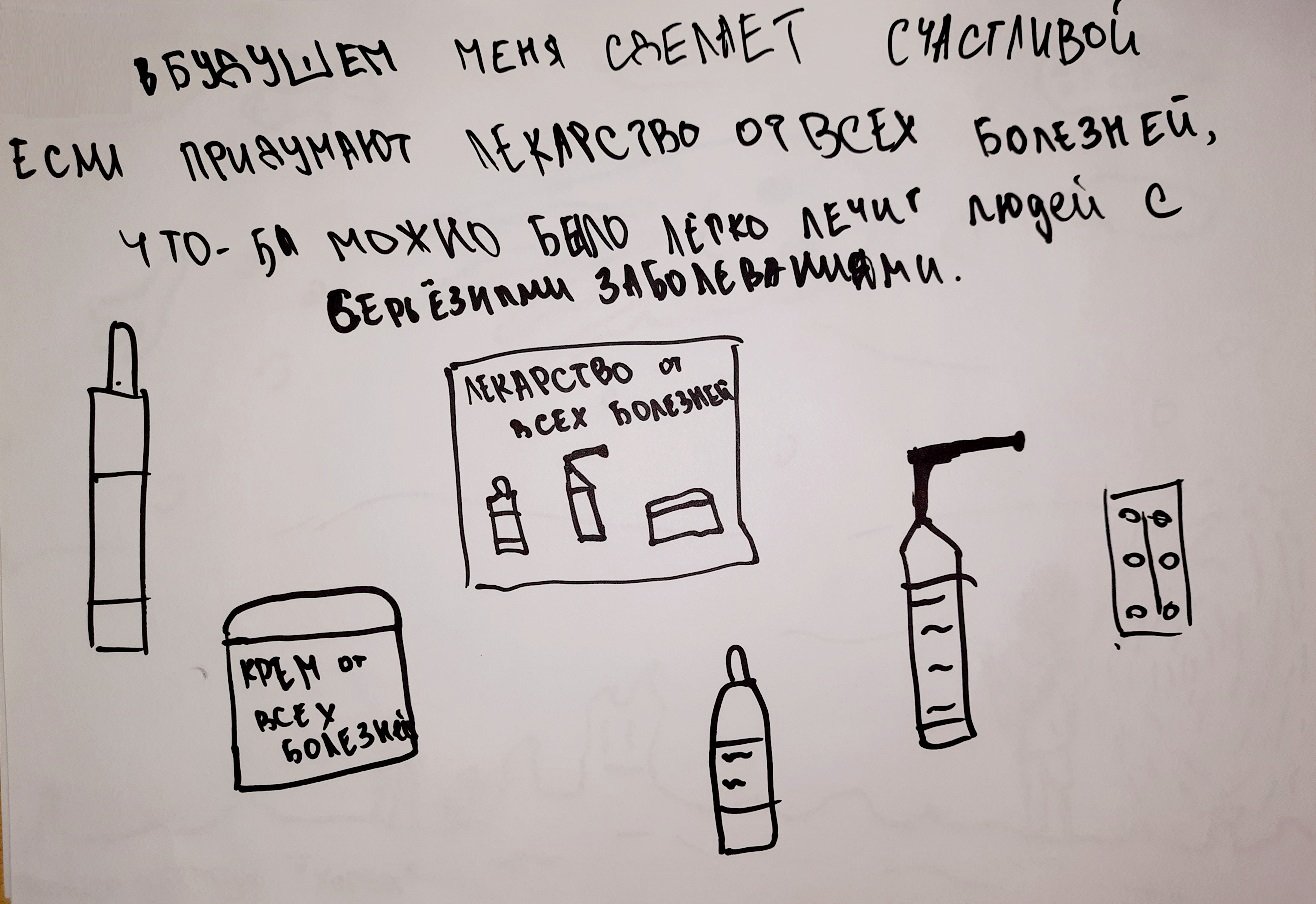 В БУДУШЕМ МЕНЯ СДЕЛАЕТ СЧАСТЛИВОЙ
ЕСЛИ ПРИДУМАЮТ ЛЕКАРСТВО ОТ ВСЕХ БОЛЕЗНЕЙ,
ЧТО-БЫ МОЖНО БЫЛО ЛЕГКО ЛЕЧИТ ЛЮДЕЙ С
СЕРЬЁЗНЫМИ ЗАБОЛЕВАНИЯМИ.
ЛЕКАРСТВО ОТ
ВСЕХ БОЛЕЗНЕЙ
КРЕМ ОТ
ВСЕХ
БОЛЕЗНЕЙ